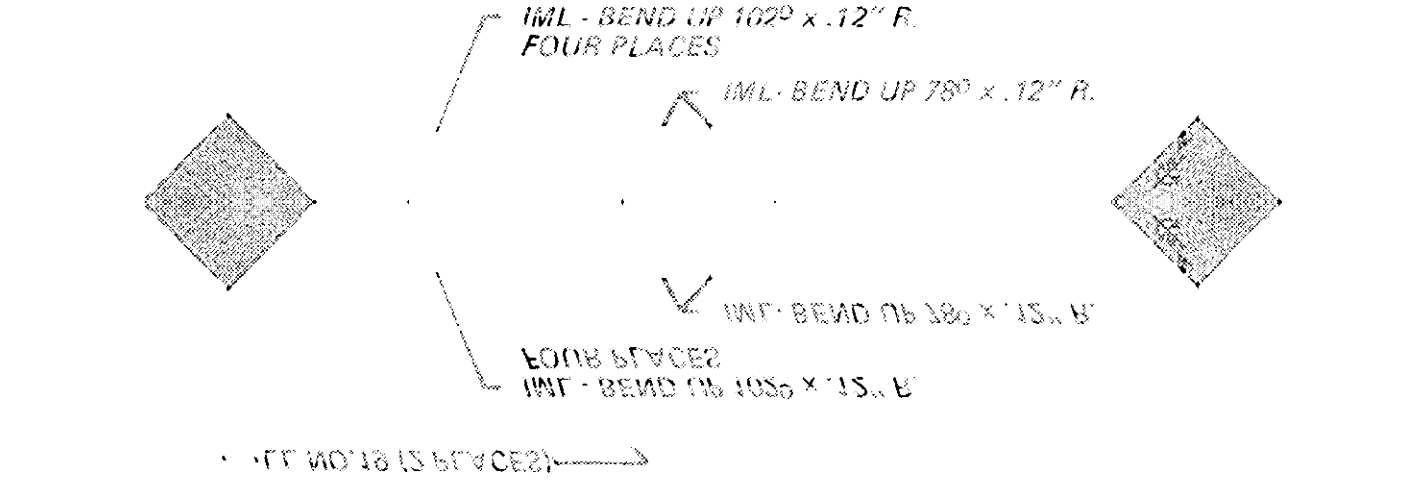 IML - BEND UP 102º x .12" R.
FOUR PLACES
IML - BEND UP 78º x .12" R.
IML - BEND UP 78º x .12" R.
FOUR PLACES
IML - BEND UP 102º x .12" R.
LL NO.19 (2 PLACES)